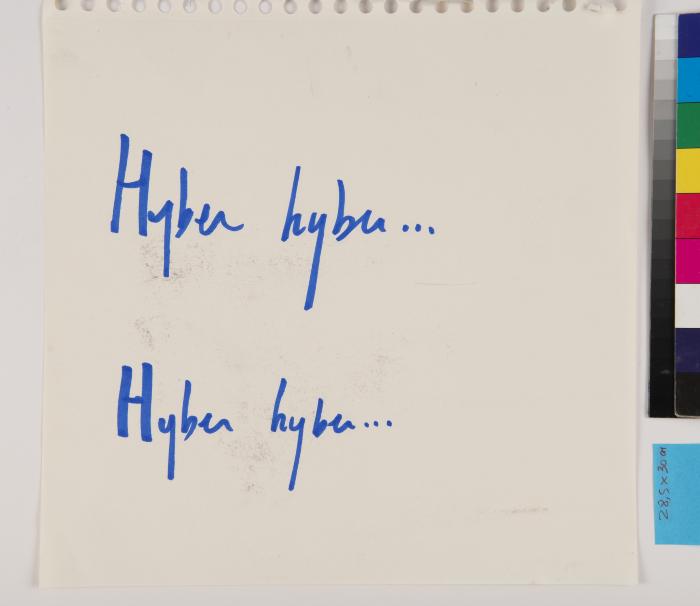 Hyber hyber...
Hyber hyber...
28,5 x 30 cm